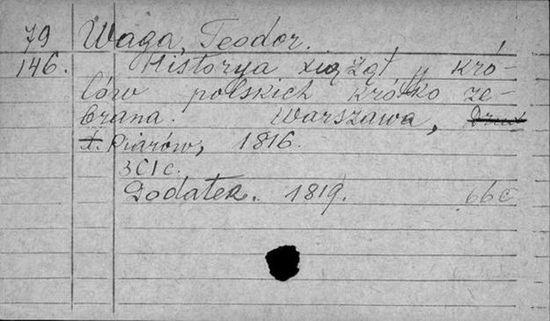 79 Waga, Teodor.
146. Historya xiążąt y kró-
lów polskich krótko ze-
brana. Warszawa, Druk
X. Piarów, 1816.
3Clc.
Dodatek. 1819. 66c